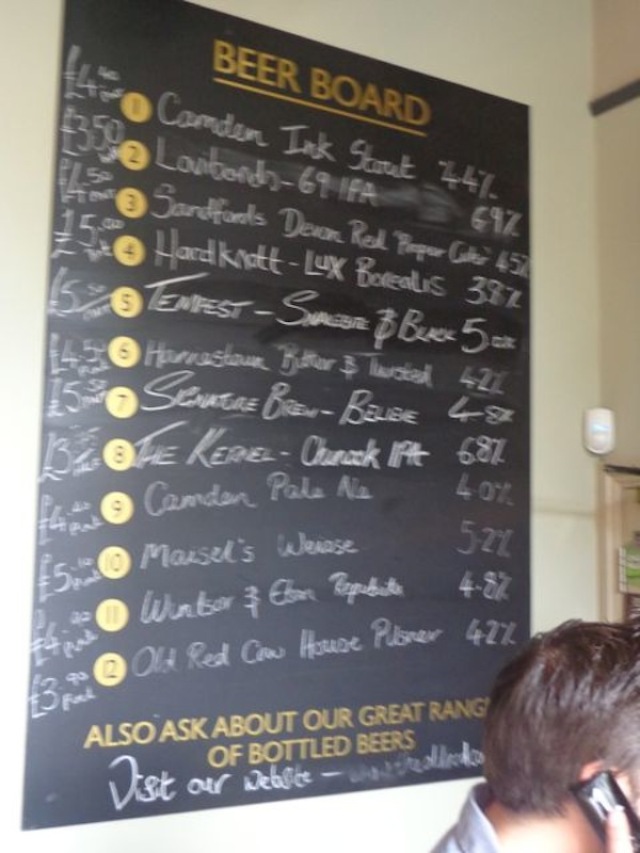 BEER BOARD
£4.40 1 Camden Ink Stout 4.4%
£3.50 2 Lovibonds - 69 IPA 6.9%
£4.50 3 Sandfords Devon Red "Proper Cider" 4.5%
£5.00 4 Hardknott - LUX Borealis 3.8%
£5.50 5 TEMPEST - & BLACK 5.0%
£4.50 pint 6 Harviestoun Bitter & Twisted 4.2%
£5.50 7 SIGNATURE BREW - BELIEVE 4.8%
£3 8 THE KERNEL - Chinook IPA 6.8%
£4.40 pint 9 Camden Pale Ale 4.0%
£5.10 pint 10 Maisel's Weisse 5.2%
£4.90 pint 11 Windsor & Eton Republika 4.8%
£3.90 pint 12 Old Red Cow House Pilsner 4.2%
ALSO ASK ABOUT OUR GREAT RANGE
OF BOTTLED BEERS
Visit our website -